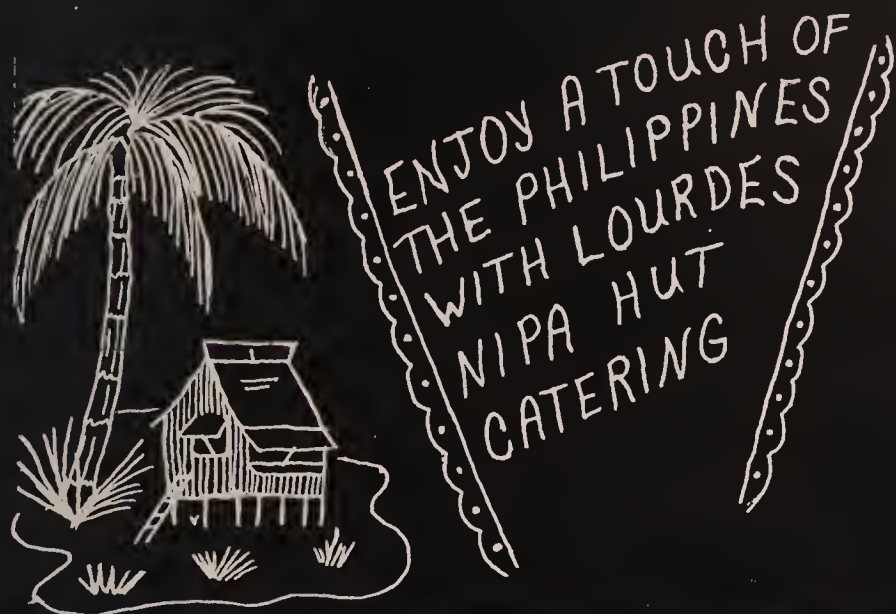 ENJOY A TOUCH OF
THE PHILIPPINES
WITH LOURDES
NIPA HUT
CATERING